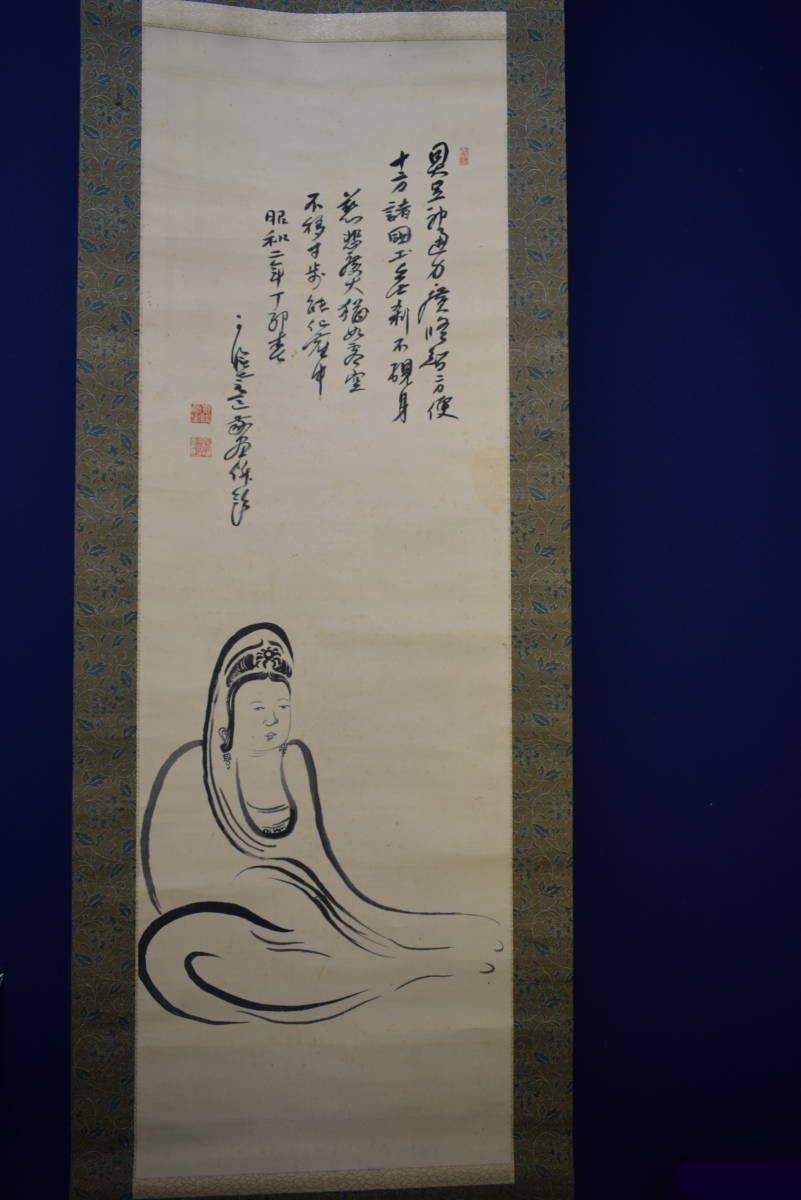 具足神通力廣修智方便
十方諸國土無刹不現身
慈悲廣大猶如虚空
不移寸歩能化應中
昭和二年丁卯春
画併